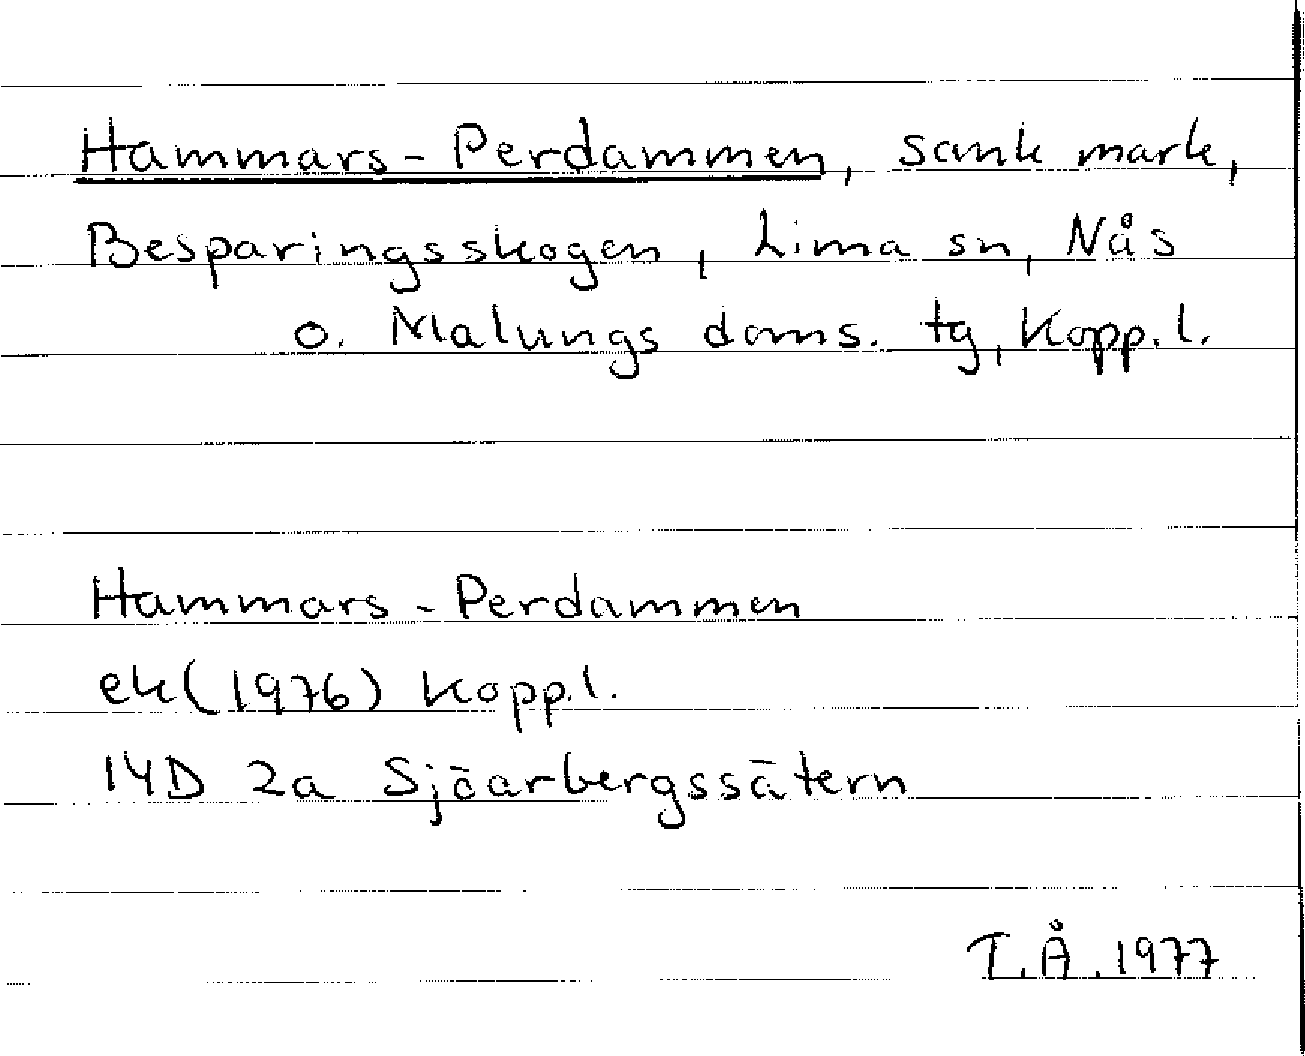 Hammars-Perdammen, sank mark,
Besparingsskogen, Lima sn, Nås
o. Malungs doms. tg, Kopp.l.
Hammars-Perdammen
ek(1976) Kopp.l.
14D 2a Sjöarbergssätern
T.Å.1977